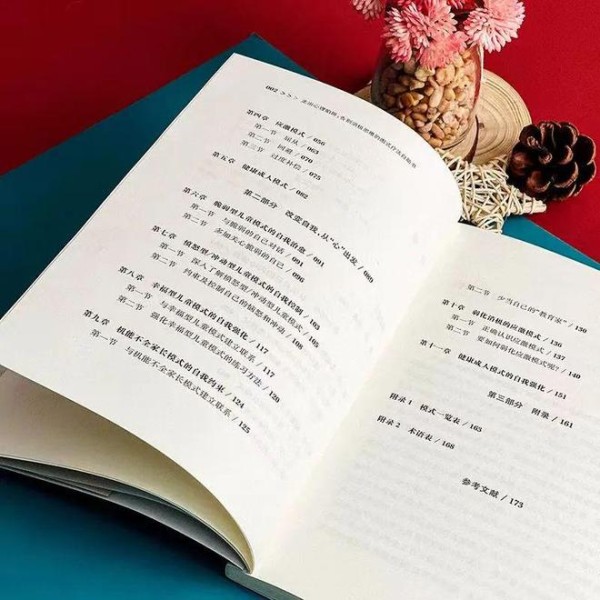 002 >>> 走出心理陷阱:告别消极思维的图式疗法自助书
第四章 应激模式 / 056
第一节 屈从 / 063
第二节 回避 / 070
第三节 过度补偿 / 075
第五章 健康成人模式 / 082
第二部分 改变自我,从“心”出发 / 089
第六章 脆弱型儿童模式的自我治愈 / 091
第一节 与脆弱的自己对话 / 091
第二节 多加关心脆弱的自己 / 096
第七章 愤怒型/冲动型儿童模式的自我控制 / 103
第一节 深入了解愤怒型/冲动型儿童模式
第二节 约束及控制自己的恼怒和冲动
第八章 幸福型儿童模式的自我强化 / 117
第一节 与幸福型儿童模式建立联系 / 117
第二节 强化幸福型儿童模式的练习方法 / 120
第九章 机能不全家长模式的自我约束 / 124
第一节 与机能不全家长模式建立联系 / 125
第二节 少当自己的“教育家” / 130
第十章 弱化消极的应激模式 / 136
第一节 正确认识应激模式 / 137
第二节 要如何弱化应激模式呢? / 140
第十一章 健康成人模式的自我强化 / 151
第三部分 附录 / 161
附录 1 模式一览表 / 163
附录 2 术语表 / 168
参考文献 / 173